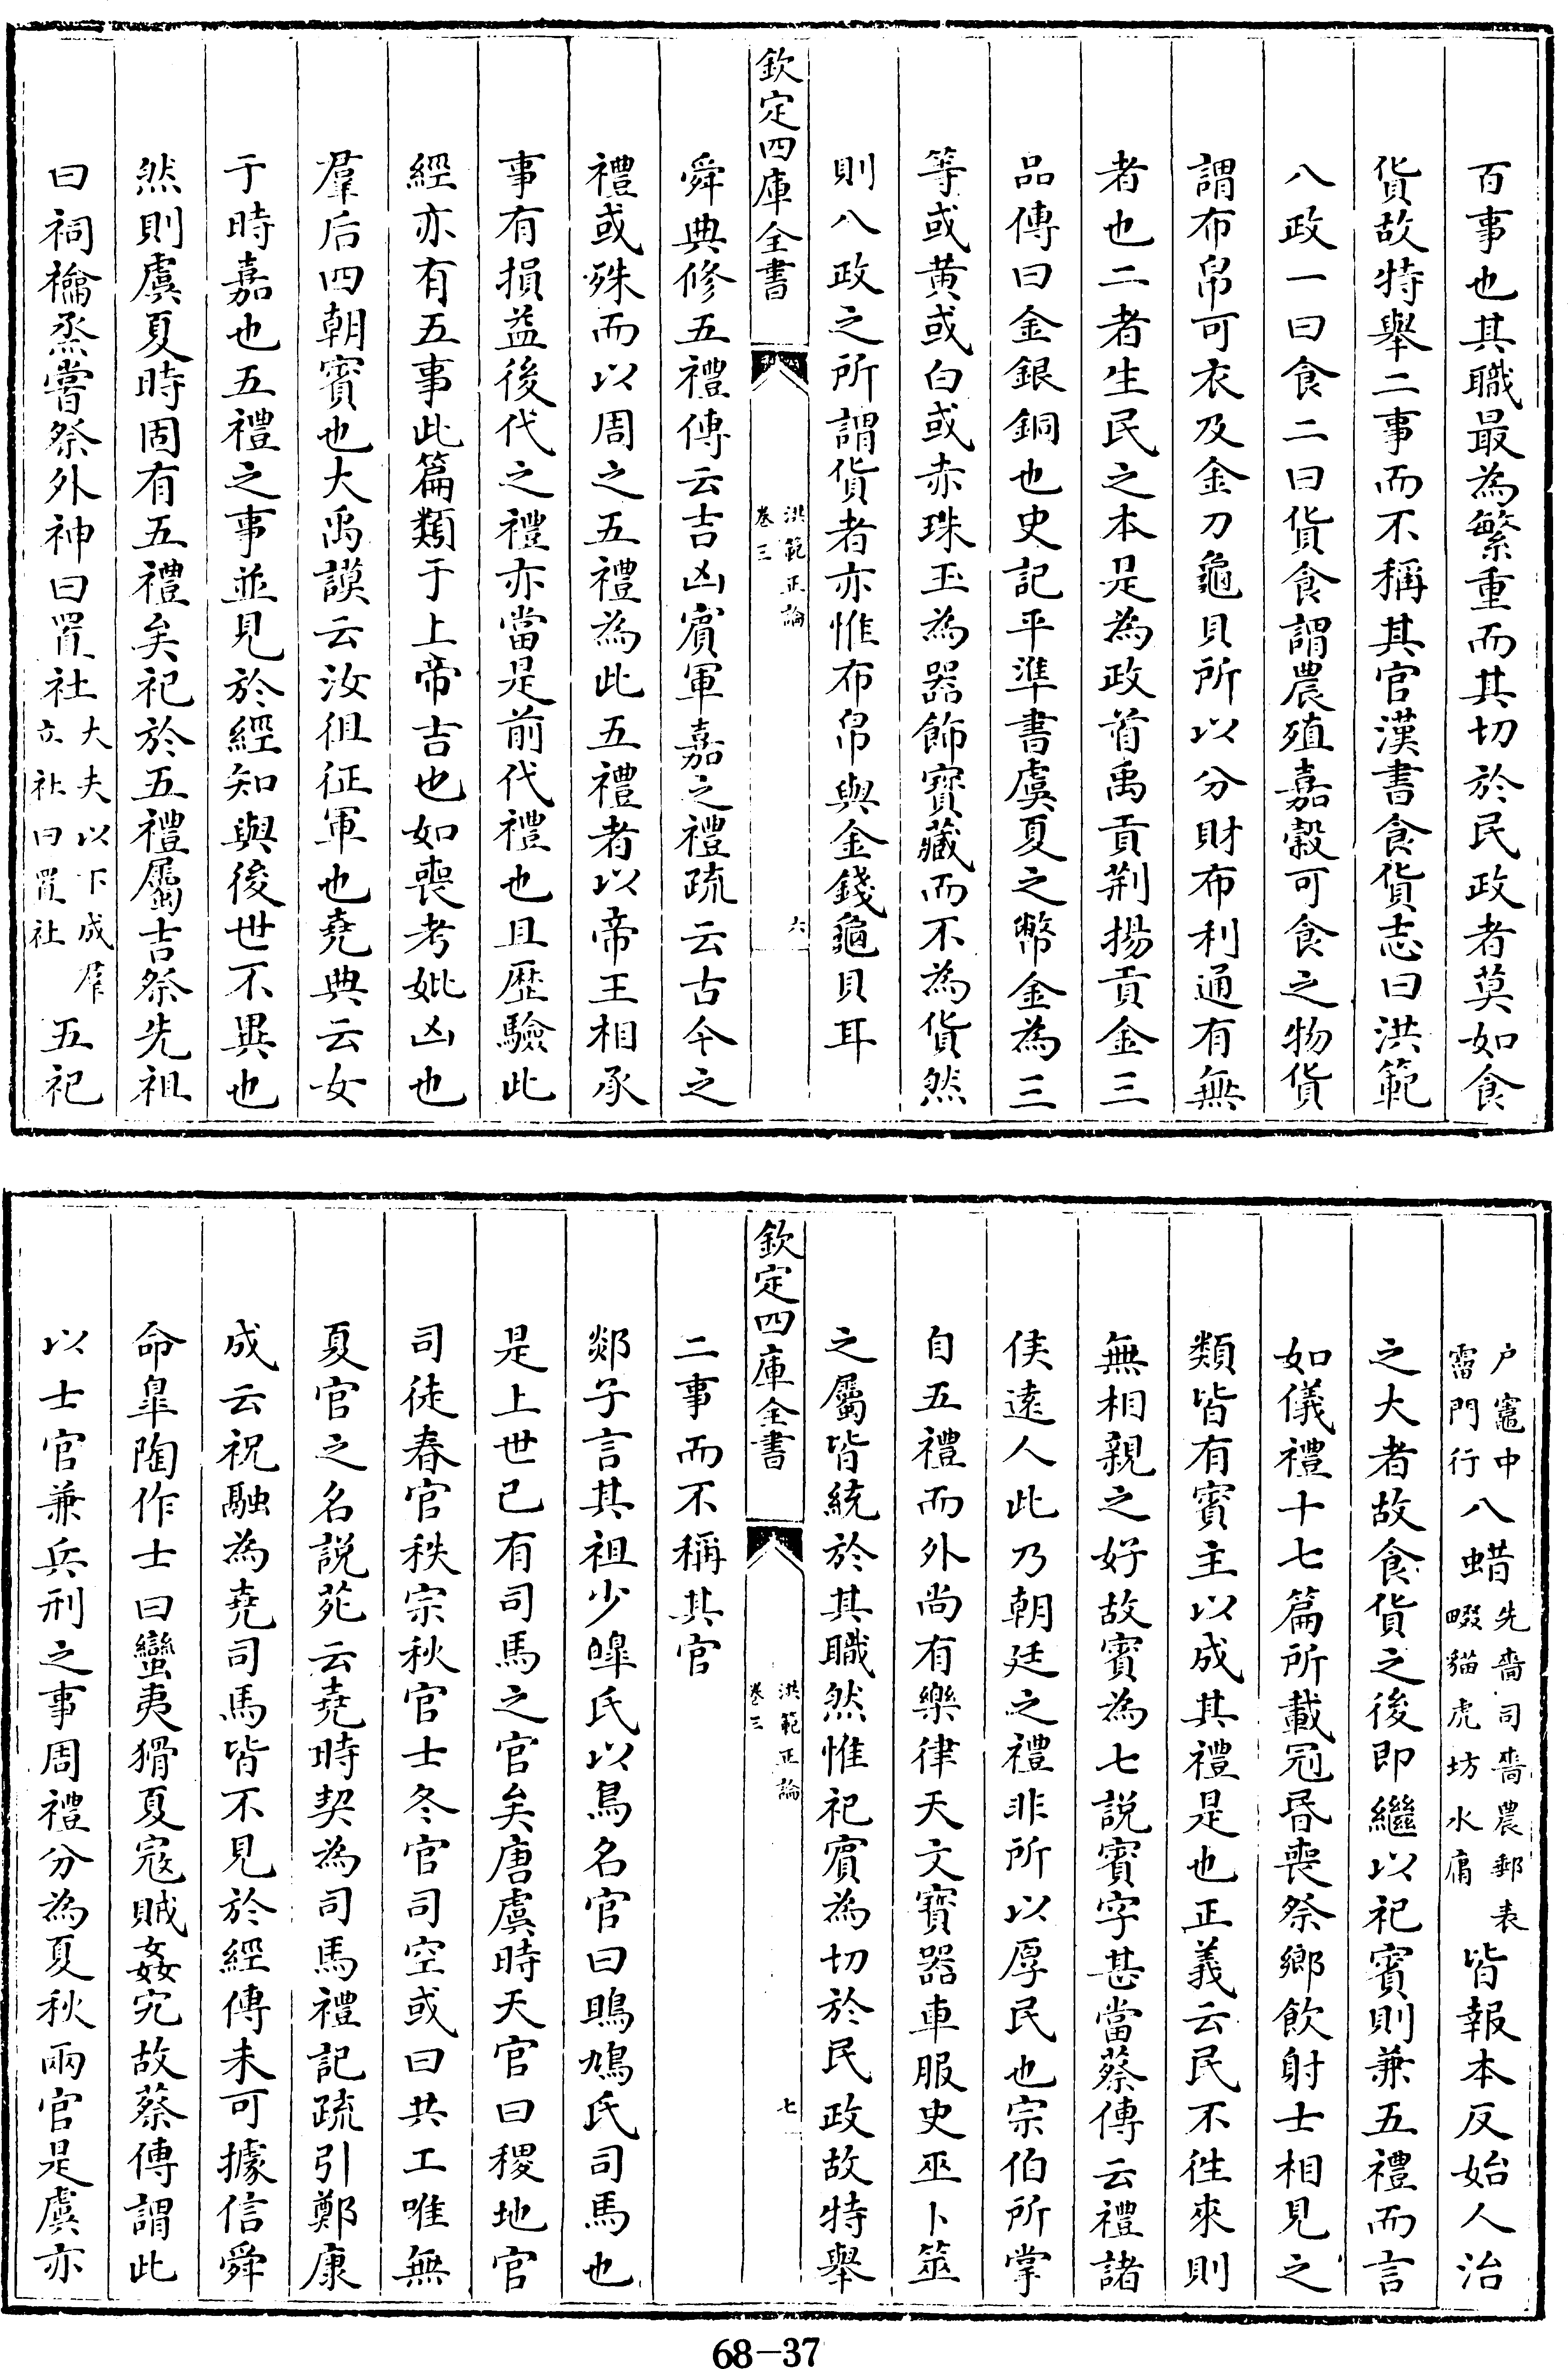 百事也其職最為繁重而其切於民政者莫如食
貨故特舉二事而不稱其官漢書食貨志曰洪範
八政一曰食二曰貨食謂農殖嘉穀可食之物貨
謂布帛可衣及金刀龜貝所以分財布利通有無
者也二者生民之本是為政首禹貢荆揚貢金三
品傳曰金銀銅也史記平準書虞夏之幣金為三
等或黄或白或赤珠玉為器飾寳藏而不為貨然
則八政之所謂貨者亦惟布帛與金錢龜貝耳
欽定四庫全書
洪範正論
卷三
六
舜典修五禮傳云吉凶賓軍嘉之禮疏云古今之
禮或殊而以周之五禮為此五禮者以帝王相承
事有損益後代之禮亦當是前代禮也且歴驗此
經亦有五事此篇類于上帝吉也如喪考妣凶也
羣后四朝賓也大禹謨云汝徂征軍也堯典云女
于時嘉也五禮之事並見於經知與後世不異也
然則虞夏時固有五禮矣祀於五禮屬吉祭先祖
曰祠禴烝嘗祭外神曰置社大夫以下成羣立社曰置社五祀
户竈中霤門行八蜡先嗇司嗇農郵表畷貓虎坊水庸皆報本反始人治
之大者故食貨之後即繼以祀賓則兼五禮而言
如儀禮十七篇所載冠昏喪祭鄉飲射士相見之
類皆有賓主以成其禮是也正義云民不徃來則
無相親之好故賓為七說賓字甚當蔡傳云禮諸
侯逺人此乃朝廷之禮非所以厚民也宗伯所掌
自五禮而外尚有樂律天文寳器車服史巫卜筮
之屬皆統於其職然惟祀賓為切於民政故特舉
欽定四庫全書
洪範正論
卷三
七
二事而不稱其官
郯子言其祖少皥氏以鳥名官曰鴡鳩氏司馬也
是上世已有司馬之官矣唐虞時天官曰稷地官
司徒春官秩宗秋官士冬官司空或曰共工唯無
夏官之名說苑云堯時契為司馬禮記疏引鄭康
成云祝融為堯司馬皆不見於經傳未可據信舜
命臯陶作士曰蠻夷猾夏寇賊姦宄故蔡傳謂此
以士官兼兵刑之事周禮分為夏秋兩官是虞亦
68-37